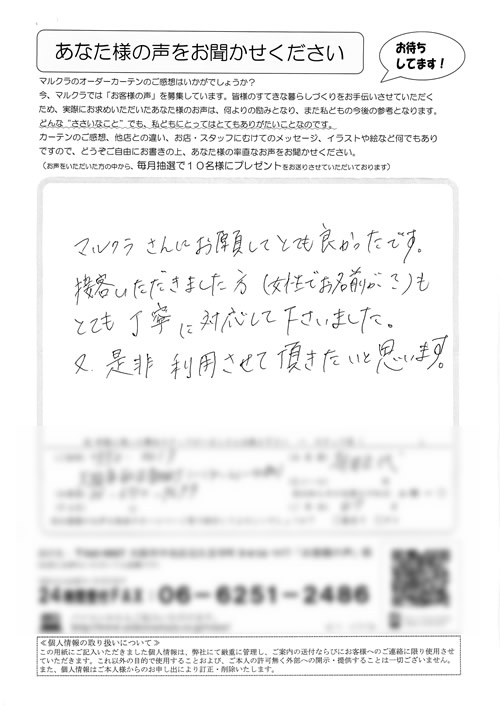 あなた様の声をお聞かせください
お待ち
してます！
マルクラのオーダーカーテンのご感想はいかがでしょうか？
今、マルクラでは「お客様の声」を募集しています。皆様のすてきな暮らしづくりをお手伝いさせていただく
ため、実際にお求めいただいたあなた様のお声は、何よりの励みとなり、また私どもの今後の参考となります。
どんな“ささいなこと”でも、私どもにとってはとてもありがたいことなのです。
カーテンのご感想、他店との違い、お店・スタッフにむけてのメッセージ、イラストや絵など何でもあり
ですので、どうぞご自由にお書きの上、あなた様の率直なお声をお聞かせください。
（お声をいただいた方の中から、毎月抽選で１０名様にプレゼントをお送りさせていただいております）
マルクラさんにお願してとても良かったです。
接客いただきました方（女性でお名前が？）も
とても丁寧に対応して下さいました。
又、是非利用させて頂きたいと思います。
24時間受付FAX：06－6251－2486
≪個人情報の取り扱いについて≫
この用紙にご記入いただきました個人情報は、弊社にて厳重に管理し、ご案内の送付ならびにお客様へのご連絡に限り使用させ
ていただきます。これ以外の目的で使用することおよび、ご本人の許可無く外部への開示・提供することは一切ございません。
また、個人情報はご本人様からのお申し出により訂正・削除いたします。